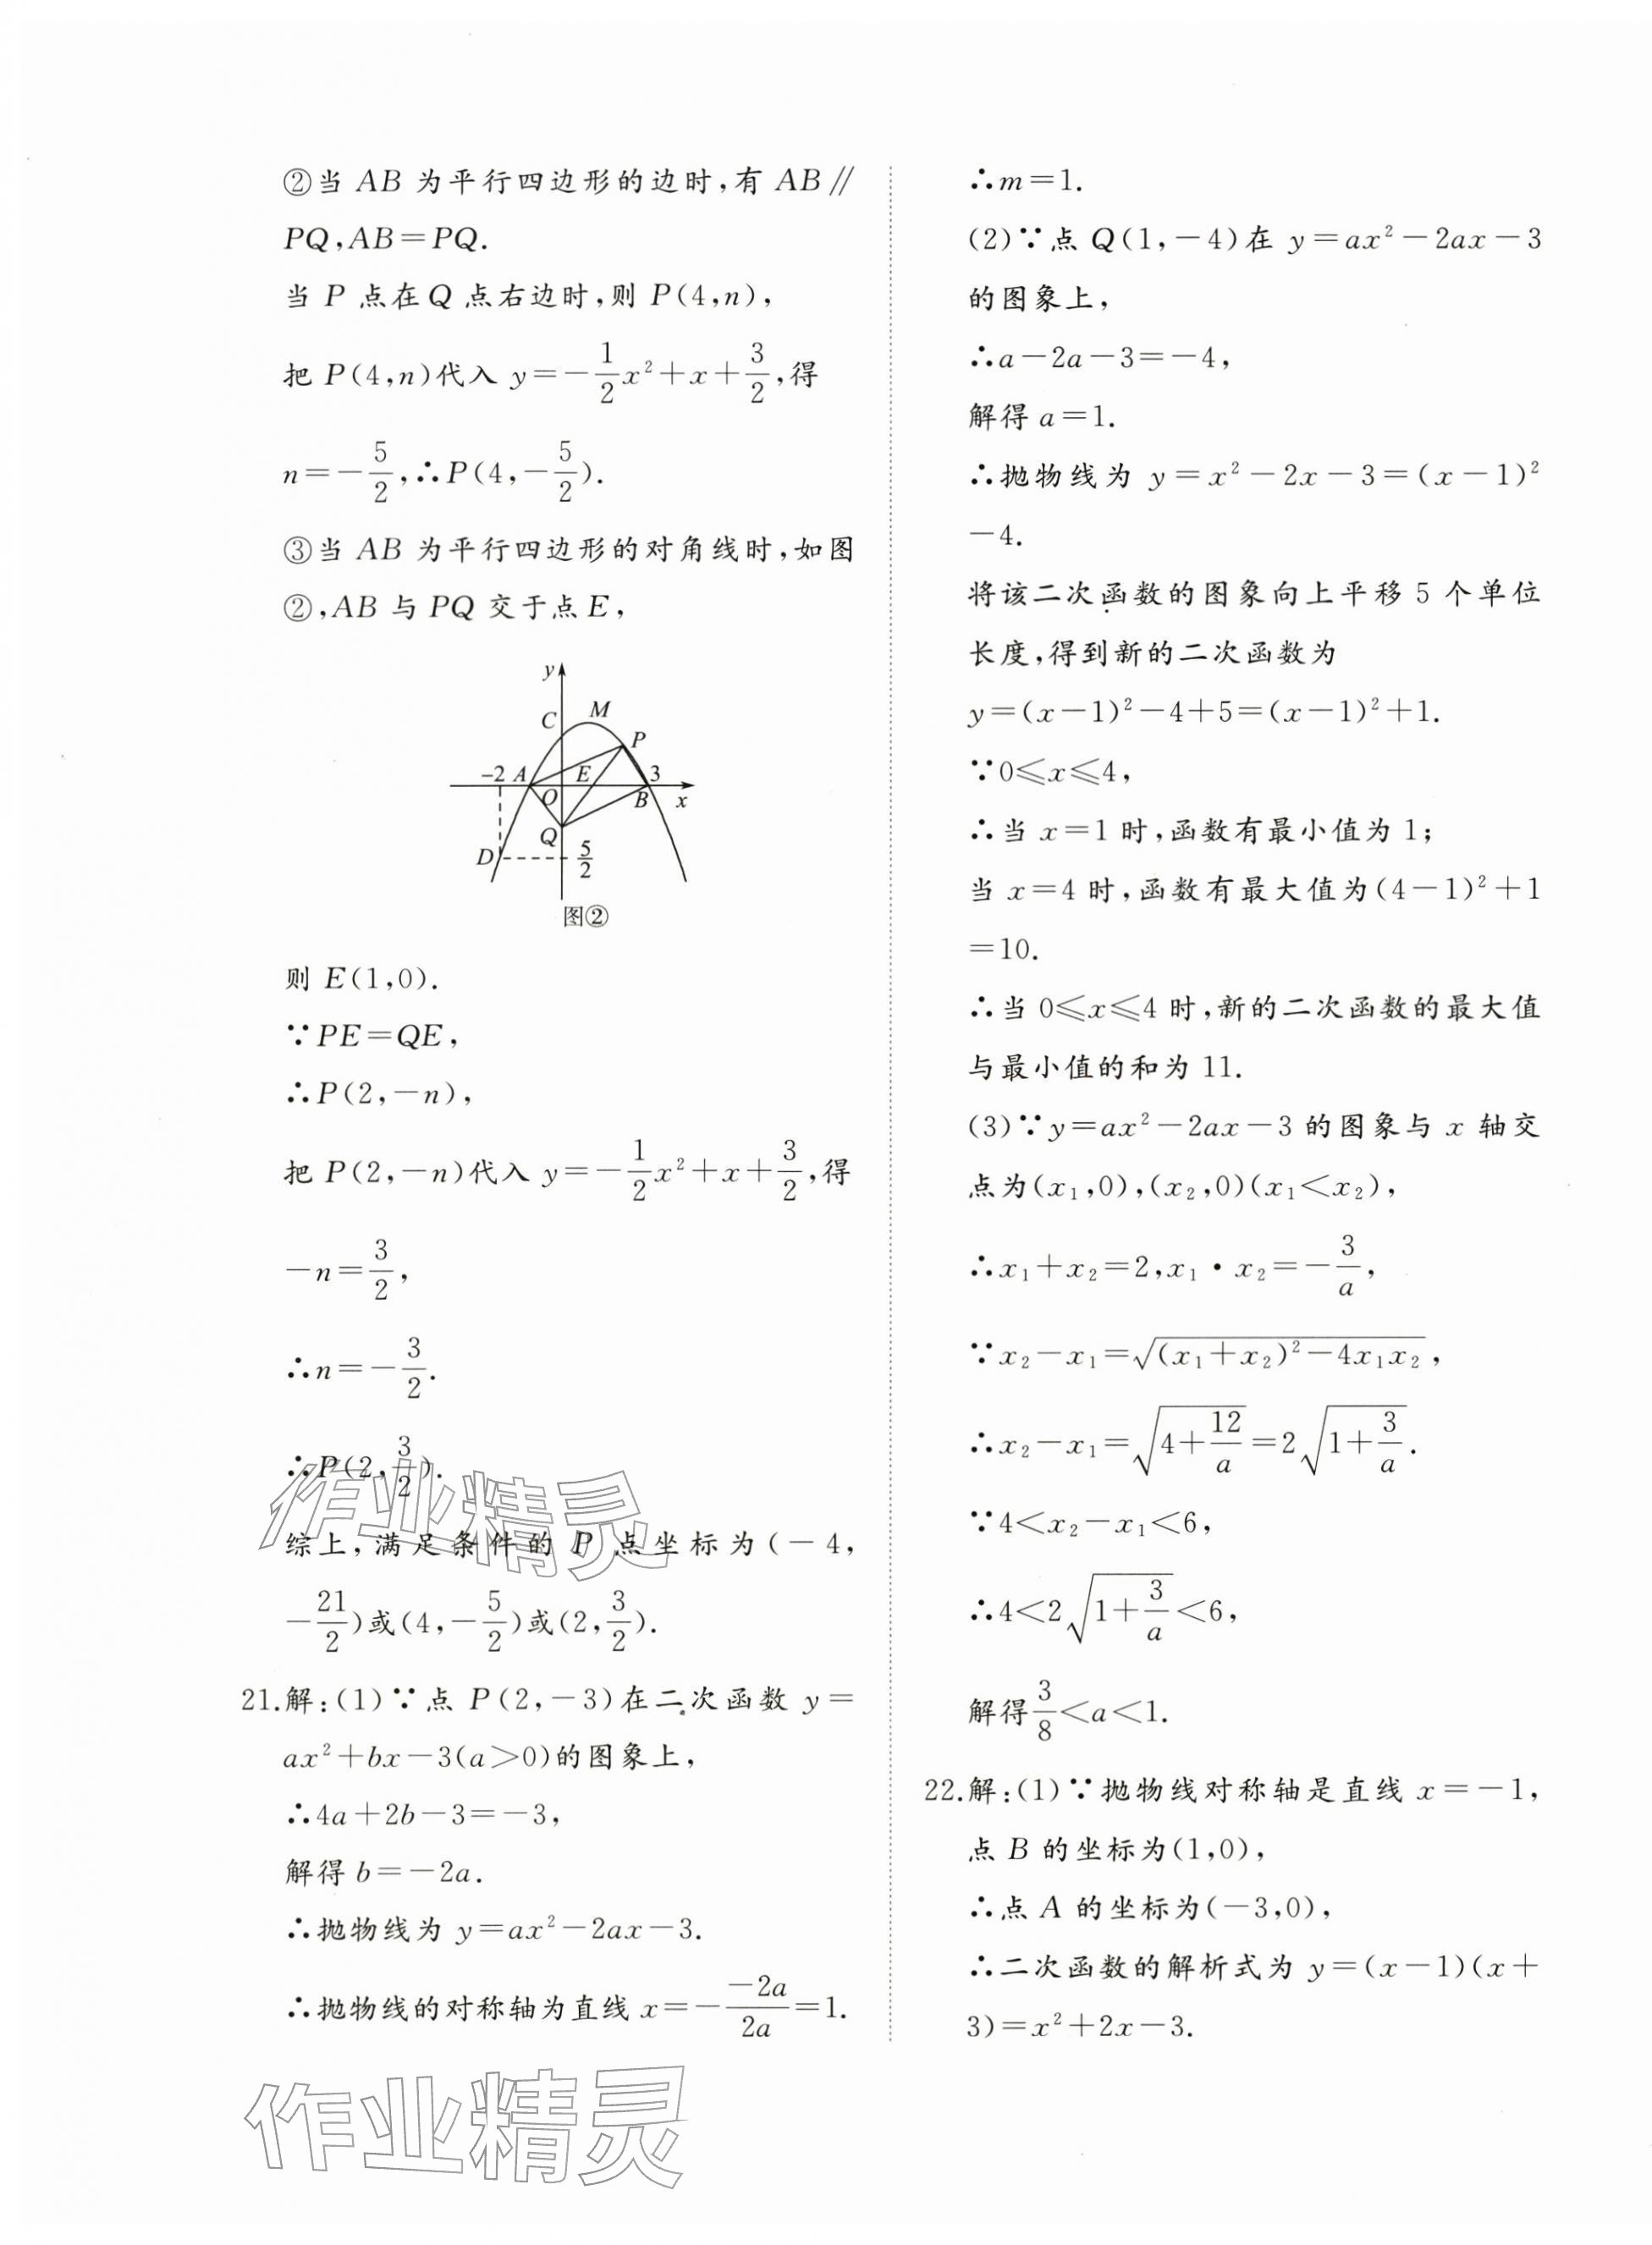 ②当 AB 为平行四边形的边时,有 AB∥
PQ,AB=PQ.
当 P 点在 Q 点右边时,则 P(4,n),
把 P(4,n)代入 y=-\frac{1}{2}x²+x+\frac{3}{2},得
n=-\frac{5}{2},∴P(4,-\frac{5}{2}).
③当 AB 为平行四边形的对角线时,如图
②,AB 与 PQ 交于点 E,
y
C M
P
-2 A E 3
O B x
Q
D 5/2
图②
则 E(1,0).
∵PE=QE,
∴P(2,-n),
把 P(2,-n)代入 y=-\frac{1}{2}x²+x+\frac{3}{2},得
-n=\frac{3}{2},
∴n=-\frac{3}{2}.
∴P(2,\frac{3}{2}).
综上,满足条件的 P 点坐标为(-4,
-\frac{21}{2})或(4,-\frac{5}{2})或(2,\frac{3}{2}).
21.解:(1)∵点 P(2,-3)在二次函数 y=
ax²+bx-3(a>0)的图象上,
∴4a+2b-3=-3,
解得 b=-2a.
∴抛物线为 y=ax²-2ax-3.
∴抛物线的对称轴为直线 x=-\frac{-2a}{2a}=1.
∴m=1.
(2)∵点 Q(1,-4)在 y=ax²-2ax-3
的图象上,
∴a-2a-3=-4,
解得 a=1.
∴抛物线为 y=x²-2x-3=(x-1)²
-4.
将该二次函数的图象向上平移 5 个单位
长度,得到新的二次函数为
y=(x-1)²-4+5=(x-1)²+1.
∵0≤x≤4,
∴当 x=1 时,函数有最小值为 1;
当 x=4 时,函数有最大值为(4-1)²+1
=10.
∴当 0≤x≤4 时,新的二次函数的最大值
与最小值的和为 11.
(3)∵y=ax²-2ax-3 的图象与 x 轴交
点为(x₁,0),(x₂,0)(x₁<x₂),
∴x₁+x₂=2,x₁·x₂=-\frac{3}{a},
∵x₂-x₁=√((x₁+x₂)²-4x₁x₂),
∴x₂-x₁=√(4+\frac{12}{a})=2√(1+\frac{3}{a}).
∵4<x₂-x₁<6,
∴4<2√(1+\frac{3}{a})<6,
解得\frac{3}{8}<a<1.
22.解:(1)∵抛物线对称轴是直线 x=-1,
点 B 的坐标为(1,0),
∴点 A 的坐标为(-3,0),
∴二次函数的解析式为 y=(x-1)(x+
3)=x²+2x-3.
作业精灵
作业精灵